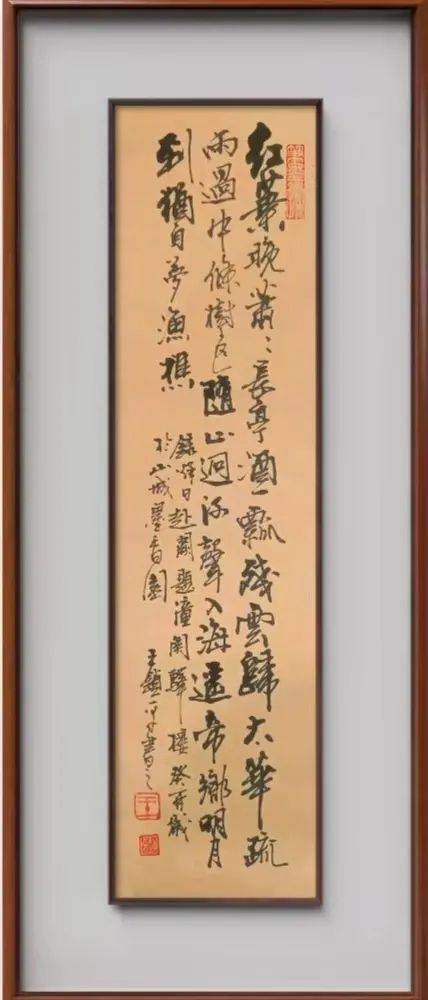 紅葉晚蕭〻長亭酒一瓢殘雲歸太華疏
雨過中條樹色隨山迥河聲入海遙帝鄉明月
到猶自夢漁樵
錄秋日赴闕題潼関驛樓癸歲
於山城墨香園
王鎮平書之